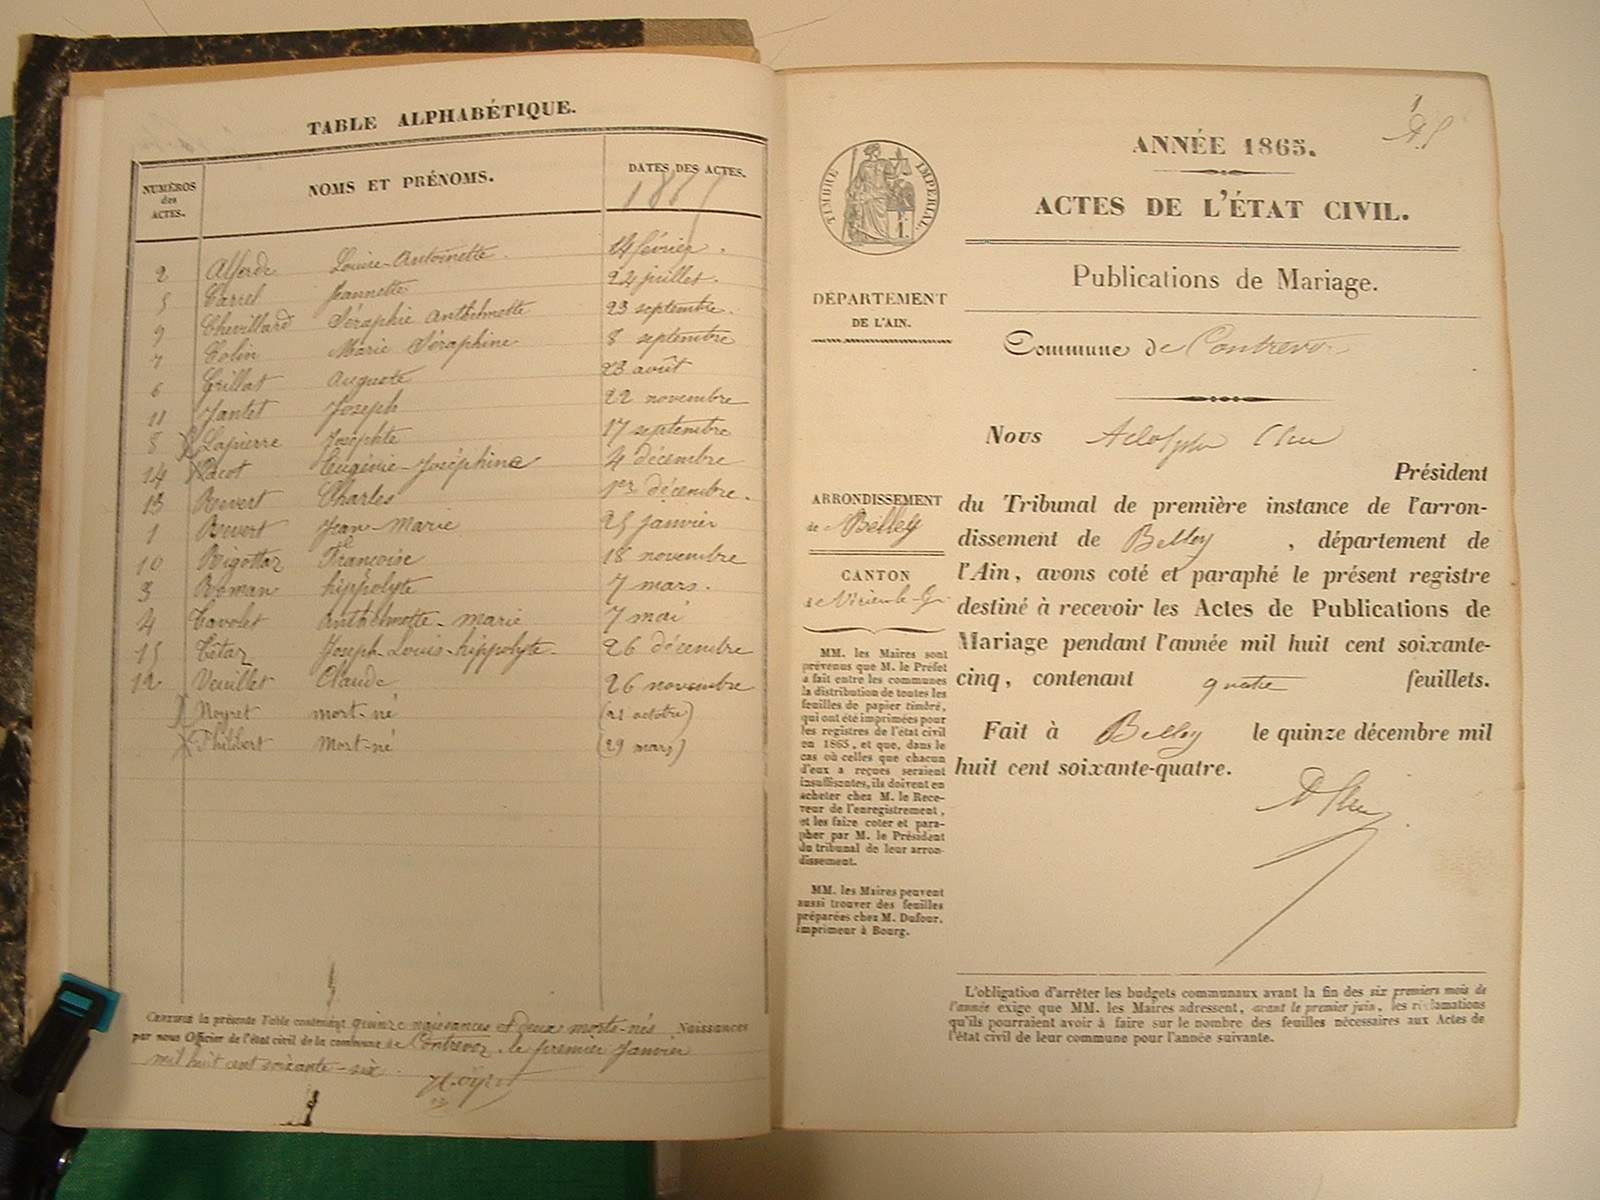 TABLE ALPHABÉTIQUE.
NUMÉROS des ACTES. NOMS ET PRÉNOMS. DATES DES ACTES.
2 Louise-Antoinette. 14 février.
5 Carrel Jeannette 24 juillet.
9 Chevillard Séraphie Anthelmette 23 septembre.
7 Colin Marie Séraphine 8 septembre
6 Grillat Auguste 23 août
11 Jantet Joseph 22 novembre
8 Lapierre Josephte 17 septembre
14 Pacot Eugénie-Joséphine 4 décembre
13 Revert Charles 1er décembre.
1 Revert Jean-Marie 25 janvier
10 Rigottaz Françoise 18 novembre
3 Roman hippolyte 7 mars.
4 Tavolet Anthelmette-marie 7 mai
15 Tétaz Joseph-Louis-hippolyte. 26 décembre
12 Veuillet Claude 26 novembre
Neyret mort-né (21 octobre)
Philibert Mort-né (29 mars)
CERTIFIÉ la présente Table contenant quinze naissances et deux morts-nés Naissances
par nous Officier de l'état civil de la commune de Contrevoz, le premier Janvier
mil huit cent soixante-six.
1
ANNÉE 1865.
TIMBRE IMPÉRIAL.
ACTES DE L'ÉTAT CIVIL.
Publications de Mariage.
DÉPARTEMENT
DE L'AIN.
Commune de Contrevoz
Nous Adolphe
Président
ARRONDISSEMENT
de Belley
CANTON
de Virieu-le-Gr.
du Tribunal de première instance de l'arron-
dissement de Belley, département de
l'Ain, avons coté et paraphé le présent registre
destiné à recevoir les Actes de Publications de
Mariage pendant l'année mil huit cent soixante-
cinq, contenant quatre feuillets.
Fait à Belley le quinze décembre mil
huit cent soixante-quatre.
MM. les Maires sont
prévenus que M. le Préfet
a fait entre les communes
la distribution de toutes les
feuilles de papier timbré,
qui ont été imprimées pour
les registres de l'état civil
en 1865, et que, dans le
cas où celles que chacun
d'eux a reçues seraient
insuffisantes, ils doivent en
acheter chez M. le Rece-
veur de l'enregistrement,
et les faire coter et para-
pher par M. le Président
du tribunal de leur arron-
dissement.
MM. les Maires peuvent
aussi trouver des feuilles
préparées chez M. Dufour,
imprimeur à Bourg.
L'obligation d'arrêter les budgets communaux avant la fin des six premiers mois de
l'année exige que MM. les Maires adressent, avant le premier juin, les réclamations
qu'ils pourraient avoir à faire sur le nombre des feuilles nécessaires aux Actes de
l'état civil de leur commune pour l'année suivante.